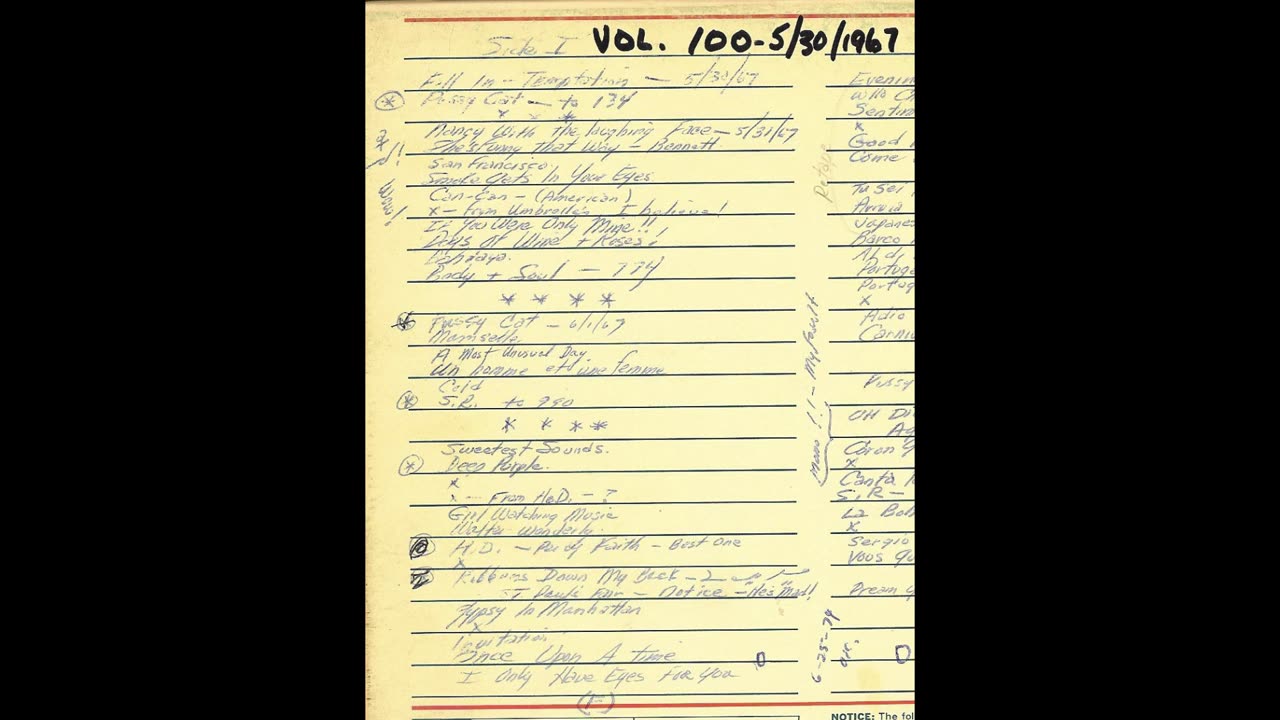 Side I VOL. 100-5/30/1967
Fill In - Temptation - 5/30/67
Pussy Cat - to 134
x - *
Nancy With the laughing Face - 5/31/67
She's Funny that Way - Bennett
San Francisco
Smoke Gets In Your Eyes
Can-Can - (American)
x - From Umbrella's I believe!
If You Were Only Mine!!
Days of Wine + Roses!
Body + Soul - 774
* * * *
Pussy Cat - 6/1/67
Mamselle
A Most Unusual Day
Un homme et une femme
Cold
S.R. to 990
* * * *
Sweetest Sounds.
Deep Purple.
x
x - From H.D. - ?
Girl Watching Music
Walter Wanderly
H.D. - Percy Faith - Best One
x
Ribbons Down My Back - 2
Notice - "He's Mad!
Gypsy In Manhattan
x
Invitation
Once Upon A Time
I Only Have Eyes For You
wow!
Retape
Mono !! - My fault
6-25-74
Evenin
Sentim
x
Good
Come
Tu Sei
Japanes
Barco
Portug
Portug
x
Adio
Carniv
Pussy
UH Di
Ag
x
Canta
S.R -
La Bo
x
Sergio
Voos
Dream
NOTICE: The fol